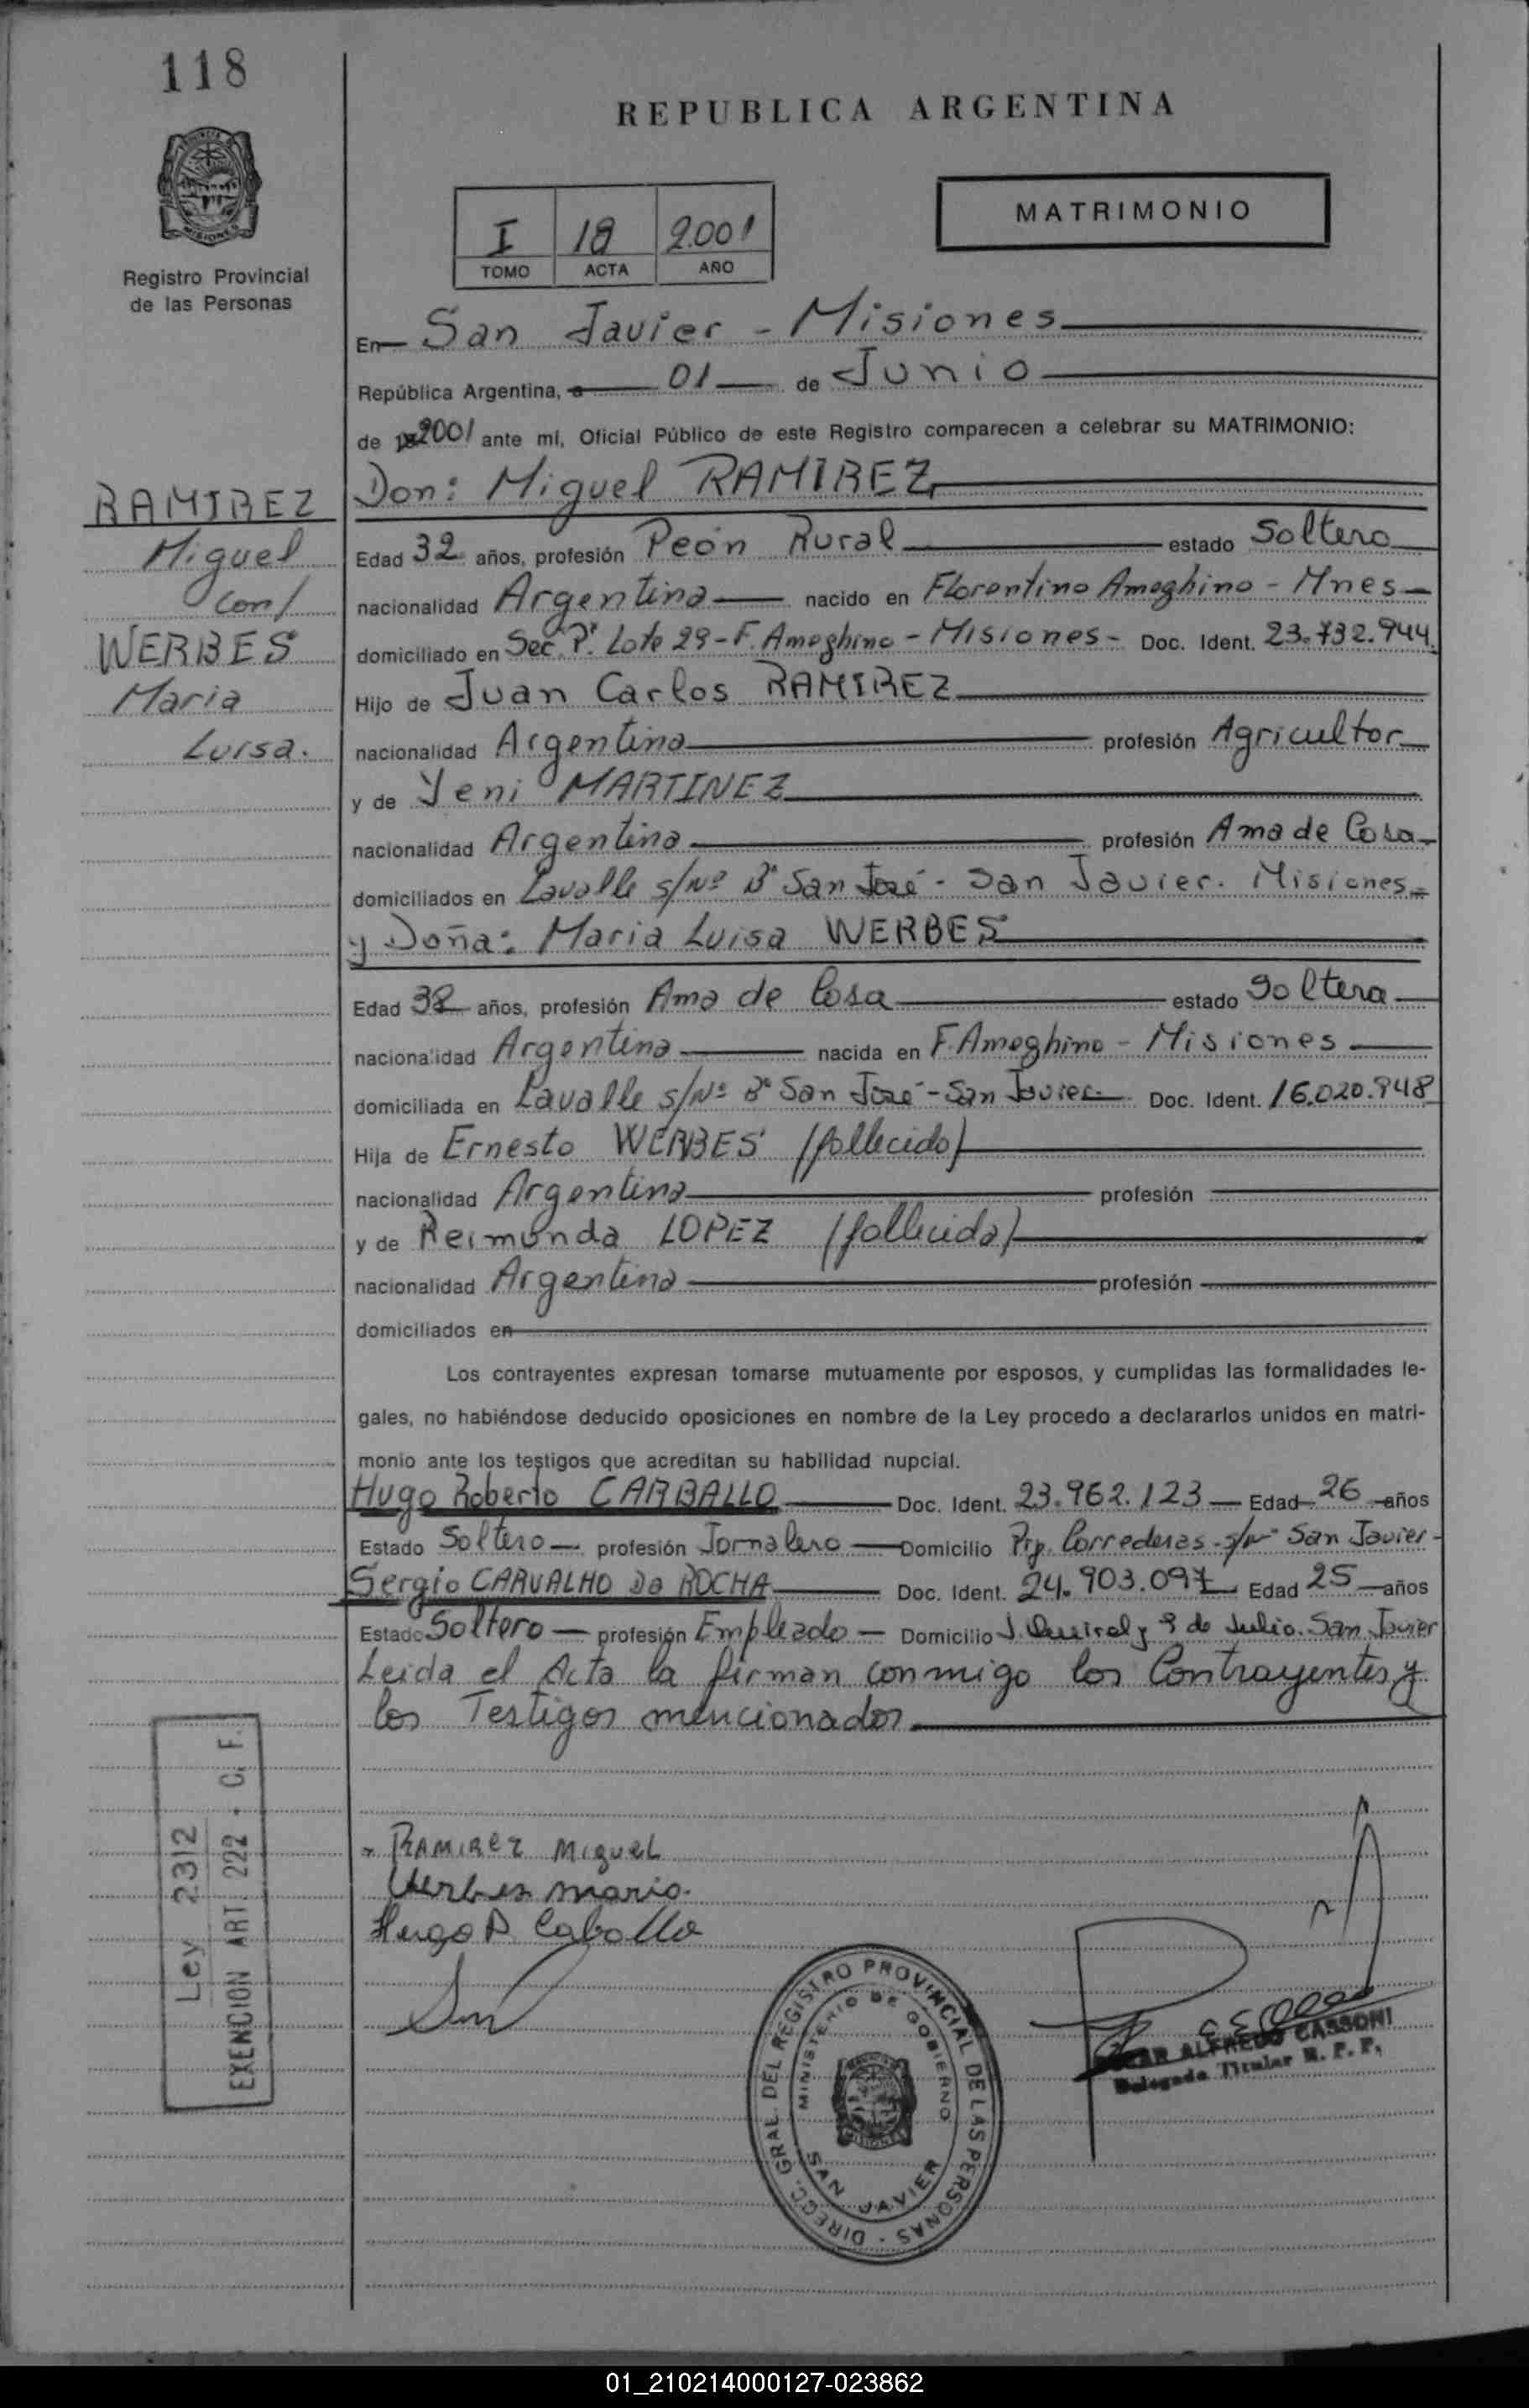 118
REPUBLICA ARGENTINA
MATRIMONIO
I 18 2.001
TOMO ACTA AÑO
Registro Provincial
de las Personas
En San Javier - Misiones
República Argentina, a 01 de Junio
de 2001 ante mí, Oficial Público de este Registro comparecen a celebrar su MATRIMONIO:
RAMIREZ
Miguel
con/
WERBES
Maria
Luisa.
Don: Miguel RAMIREZ
Edad 32 años, profesión Peón Rural estado Soltero
nacionalidad Argentina nacido en Florentino Ameghino - Mnes -
domiciliado en Sec. P. Lote 29 - F. Ameghino - Misiones - Doc. Ident. 23.732.944
Hijo de Juan Carlos RAMIREZ
nacionalidad Argentina profesión Agricultor
y de Yeni MARTINEZ
nacionalidad Argentina profesión Ama de Casa
domiciliados en Lavalle s/Nº Bº San José - San Javier. Misiones
y Doña: Maria Luisa WERBES
Edad 38 años, profesión Ama de Casa estado Soltera
nacionalidad Argentina nacida en F. Ameghino - Misiones
domiciliada en Lavalle s/Nº Bº San José - San Javier. Doc. Ident. 16.020.948
Hija de Ernesto WERBES (fallecido)
nacionalidad Argentina profesión
y de Reimunda LOPEZ (fallecida)
nacionalidad Argentina profesión
domiciliados en
Los contrayentes expresan tomarse mutuamente por esposos, y cumplidas las formalidades le-
gales, no habiéndose deducido oposiciones en nombre de la Ley procedo a declararlos unidos en matri-
monio ante los testigos que acreditan su habilidad nupcial.
Hugo Roberto CARBALLO Doc. Ident. 23.962.123 Edad 26 años
Estado Soltero profesión Jornalero Domicilio Prj. Correderas s/nº San Javier -
Sergio CARVALHO DA ROCHA Doc. Ident. 24.903.097 Edad 25 años
Estado Soltero profesión Empleado Domicilio J. y 9 de Julio. San Javier
Leida el Acta la firman conmigo los Contrayentes y
los Testigos mencionados
Ley 2312
EXENCION ART. 222 - C. F.
RAMIREZ MIGUEL
Werbes maria.
Hugo R. Caballo
DIRECC. GRAL. DEL REGISTRO PROVINCIAL DE LAS PERSONAS
MINISTERIO DE GOBIERNO
SAN JAVIER
ALFREDO CASSONI
Delegado Titular R. P. P.
01_210214000127-023862